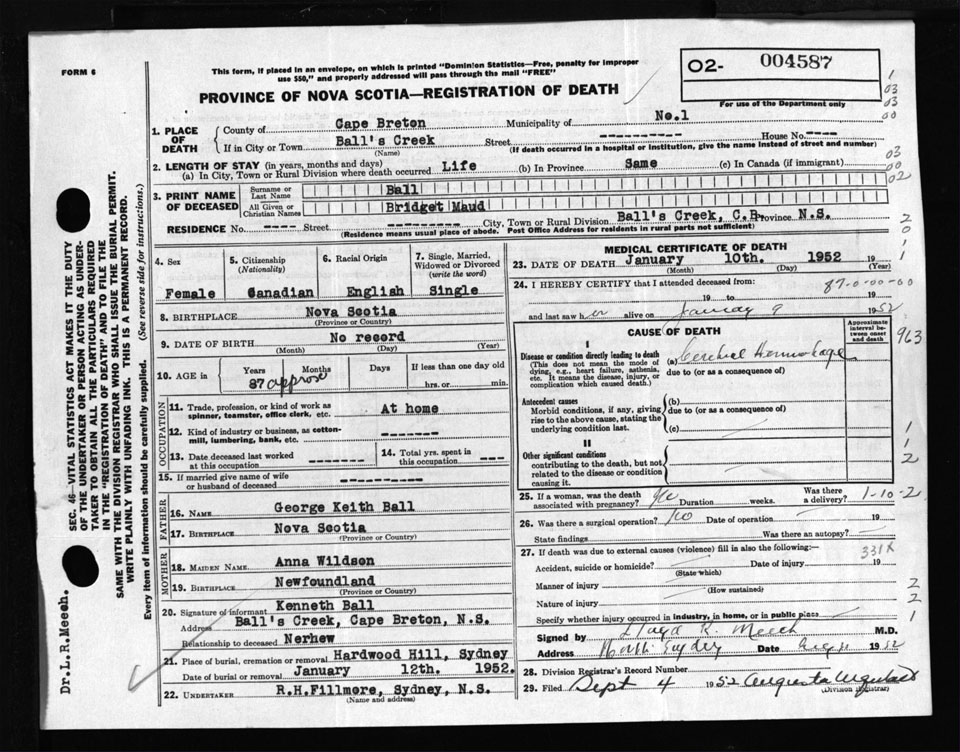 FORM 6
This form, if placed in an envelope, on which is printed "Dominion Statistics—Free, penalty for improper
use $50," and properly addressed will pass through the mail "FREE"
O2- 004587
For use of the Department only
PROVINCE OF NOVA SCOTIA—REGISTRATION OF DEATH
1
03
03
00
03
00
02
2
0
1
1
1. PLACE OF DEATH { County of Cape Breton Municipality of No.1
If in City or Town Ball's Creek Street ---------- House No. ----
(Name) (If death occurred in a hospital or institution, give the name instead of street and number)
2. LENGTH OF STAY (in years, months and days)
(a) In City, Town or Rural Division where death occurred Life (b) In Province Same (c) In Canada (if immigrant)
3. PRINT NAME OF DECEASED
Surname or Last Name Ball
All Given or Christian Names Bridget Maud
RESIDENCE No. ---- Street -------- City, Town or Rural Division Ball's Creek, C.B. Province N.S.
(Residence means usual place of abode. Post Office Address for residents in rural parts not sufficient)
4. Sex Female
5. Citizenship (Nationality) Canadian
6. Racial Origin English
7. Single, Married, Widowed or Divorced (write the word) Single
8. BIRTHPLACE Nova Scotia
(Province or Country)
9. DATE OF BIRTH No record
(Month) (Day) (Year)
10. AGE in { Years 87 approx Months Days If less than one day old
hrs. or min.
OCCUPATION
11. Trade, profession, or kind of work as spinner, teamster, office clerk, etc. At home
12. Kind of industry or business, as cotton-mill, lumbering, bank, etc. -------
13. Date deceased last worked at this occupation -------
14. Total yrs. spent in this occupation ---
15. If married give name of wife or husband of deceased ----------
FATHER
16. NAME George Keith Ball
17. BIRTHPLACE Nova Scotia
(Province or Country)
MOTHER
18. MAIDEN NAME Anna Wildson
19. BIRTHPLACE Newfoundland
(Province or Country)
20. Signature of informant Kenneth Ball
Address Ball's Creek, Cape Breton, N.S.
Relationship to deceased Nerhew
21. Place of burial, cremation or removal Hardwood Hill, Sydney
Date of burial or removal January 12th. 1952.
22. UNDERTAKER R.H.Fillmore, Sydney, N.S.
(Name and address)
MEDICAL CERTIFICATE OF DEATH
23. DATE OF DEATH January 10th. 1952 19
(Month) (Day) (Year)
24. I HEREBY CERTIFY that I attended deceased from: 87-0-00-00
19 to 19
and last saw her alive on January 9 1952
CAUSE OF DEATH
Approximate interval between onset and death
963
I
Disease or condition directly leading to death (a) Cerebral Hemorrhage
(This does not mean the mode of dying, e.g., heart failure, asthenia, etc. It means the disease, injury, or complication which caused death.)
due to (or as a consequence of)
Antecedent causes
Morbid conditions, if any, giving rise to the above cause, stating the underlying condition last.
(b)
due to (or as a consequence of)
(c)
II
Other significant conditions
contributing to the death, but not related to the disease or condition causing it.
1
2
25. If a woman, was the death associated with pregnancy? No Duration weeks. Was there a delivery? 1-10-2
26. Was there a surgical operation? No Date of operation 19
State findings Was there an autopsy?
27. If death was due to external causes (violence) fill in also the following:— 331X
Accident, suicide or homicide? Date of injury 19
(State which)
Manner of injury
(How sustained)
Nature of injury
Specify whether injury occurred in industry, in home, or in public place
2
2
1
Signed by Lloyd R. Meech M.D.
Address North Sydney Date 1952
28. Division Registrar's Record Number
29. Filed Sept 4 1952 Augusta
(Division Registrar)
SEC. 46—VITAL STATISTICS ACT MAKES IT THE DUTY
OF THE UNDERTAKER OR PERSON ACTING AS UNDER-
TAKER TO OBTAIN ALL THE PARTICULARS REQUIRED
IN THE "REGISTRATION OF DEATH" AND TO FILE THE
SAME WITH THE DIVISION REGISTRAR WHO SHALL ISSUE THE BURIAL PERMIT.
WRITE PLAINLY WITH UNFADING INK. THIS IS A PERMANENT RECORD.
Every item of information should be carefully supplied. (See reverse side for instructions.)
Dr.L.R.Meech.